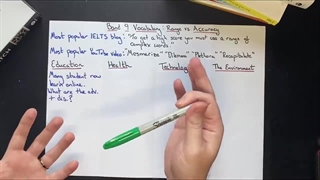 Band 9 Vocabulary Range vs Accuracy
Most popular IELTS blog: "To get a high score you must use a range of
complex words"
Most popular YouTube video: "Mesmerize" "Dilemma" "Plethora" "Recapitulate"
Education Health Technology The Environment
Many student now
learn online.
What are the adv.
+ dis.?